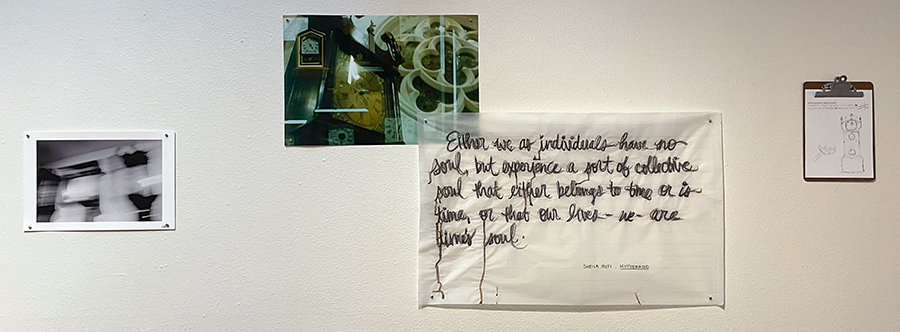 Either we as individuals have no
soul, but experience a sort of collective
soul that either belongs to time or is
time, or that our lives – we – are
time's soul.
SHEILA HETI . MOTHERHOOD